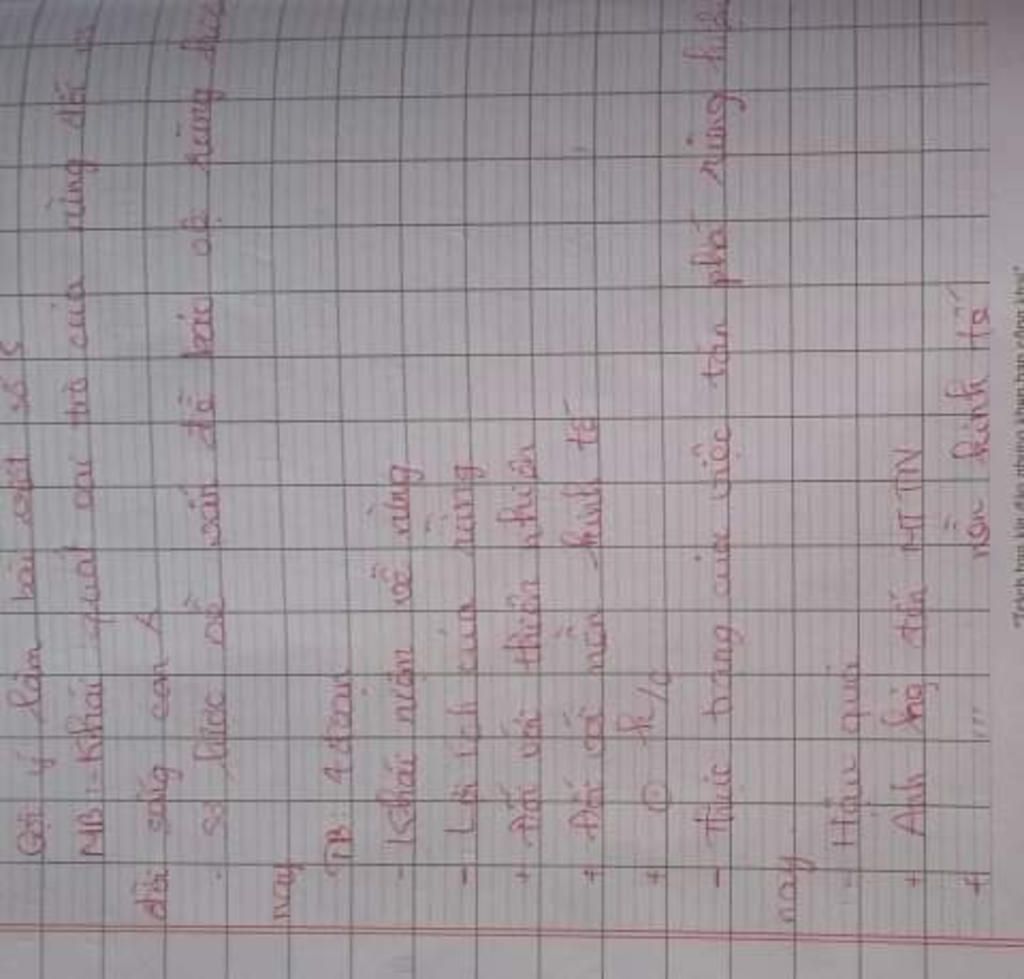 Gợi ý làm bài viết số
MB: - Khái quát vai trò của rừng đối
đời sống con
- sơ lược về vấn đề bảo vệ rừng
nay
TB 4 đoạn
- Khái niệm về rừng
- Lợi ích của rừng
+ Đối với thiên nhiên
+ Đối với nền kinh tế
+
- Thực trạng của việc tàn phá rừng
nay
- Hậu quả
+ Ảnh hg đến MTTN
+ ,,, nền kinh tế